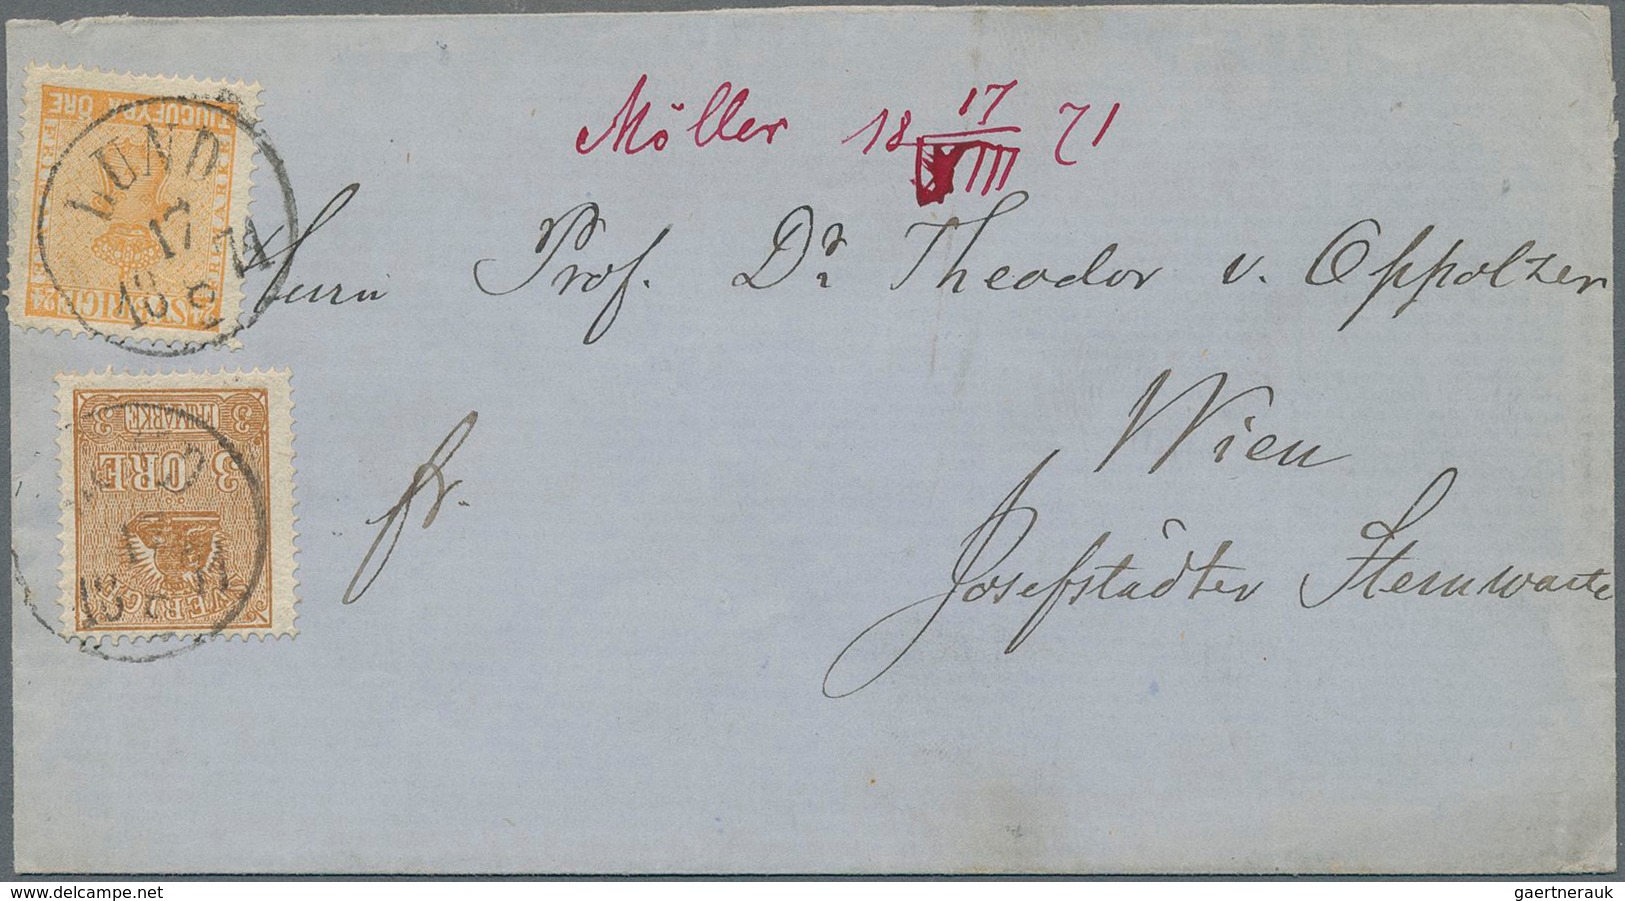 Möller 18 17/VIII 71
Herrn Prof. Dr. Theodor v. Oppolzer
Wien
Josefstädter Sternwarte
fr.
TJUGUFYRA ÖRE
FRIMÄRKE
SVERIGE
24 24
LUND
17 8
18 71
3 FRIMÄRKE 3
3 ÖRE
SVERIGE
17
18 71
www.delcampe.net
gaertnerauk